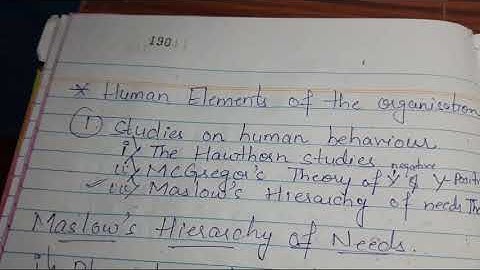 190
* Human Elements of the organisation
① Studies on human behaviour
i) The Hawthorn studies
negative
ii) McGregor's Theory of X & Y Positi
iii) Maslow's Hierarchy of needs The
Maslow's Hierarchy of Needs.